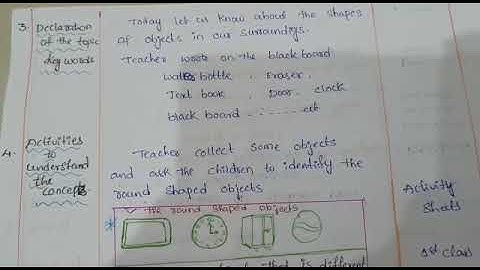 3. Declaration
of the topic
key words
Today let us know about the shapes
of objects in our surroundigs.
Teacher wrote on the black board
water bottle , Eraser,
Text book , Door, clock
black board ........ ect
4. Activities
to
understand
the concept
Teacher collect some objects
and ask the children to identify the
round shaped objects
Activity
Sheets
✓ the round shaped objects
1st class
that is different